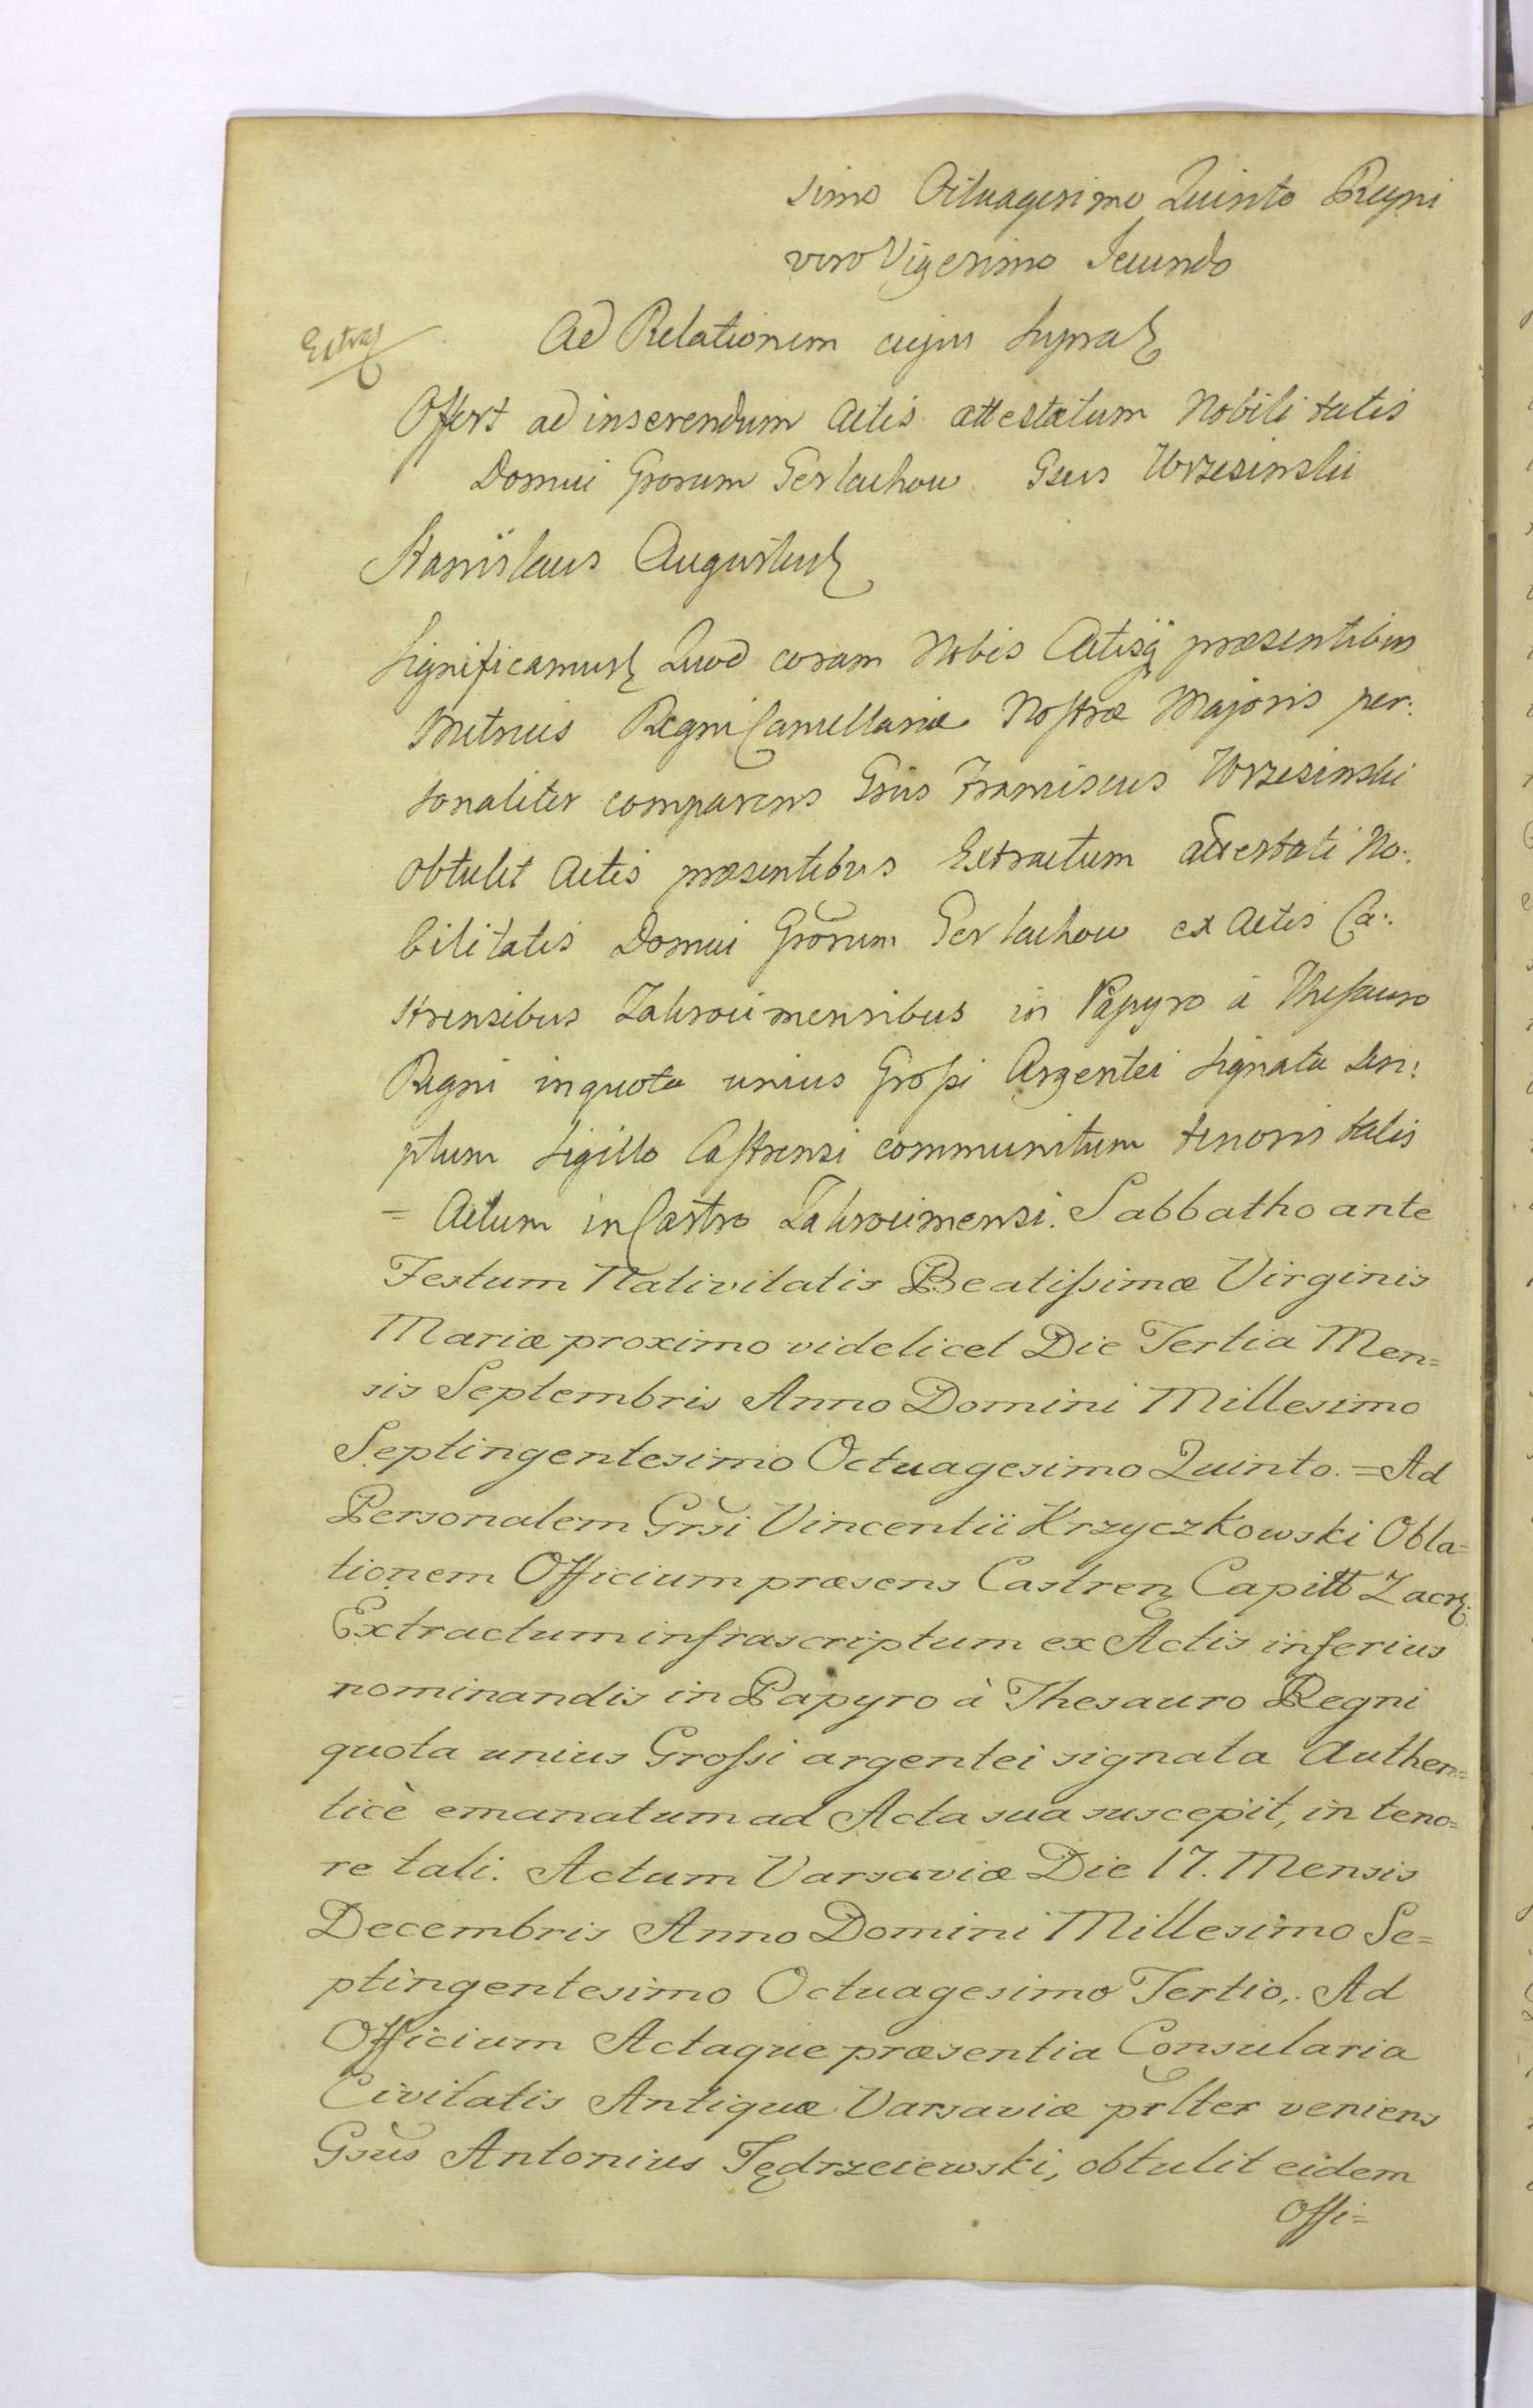 simo Octuagesimo Quinto Regni
vero Vigesimo Secundo
Extrad
Ad Relationem cujus supra
Offert ad inserendum Actis attestatum Nobilitatis
Domui Grorum Gerlachow Gsus Wrzesinski
Stanislaus Augustus
Significamus Quod coram Nobis Actisq praesentibus
Metricis Regni Cancellariae Nostrae Majoris per:
sonaliter comparens Gsus Franciscus Wrzesinski
obtulit Actis praesentibus Extractum attestati No:
bilitatis Domui Grorum Gerlachow ex Actis Ca:
strensibus Zakrocimensibus in Papyro à Thesauro
Regni in quota unius Grossi Argentei signata scri:
ptum sigillo Castrensi communitum tenoris talis
= Actum in Castro Zakrocimensi. Sabbatho ante
Festum Nativitatis Beatissimæ Virginis
Mariæ proximo videlicet Die Tertia Men=
sis Septembris Anno Domini Millesimo
Septingentesimo Octuagesimo Quinto. = Ad
Personalem Grsi Vincentii Krzyczkowski Obla=
tionem Officium præsens Castren Capitt Zacr:
Extractum infrascriptum ex Actis inferius
nominandis in Papyro à Thesauro Regni
quota unius Grossi argentei signata Authen=
ticè emanatum ad Acta sua suscepit, in teno=
re tali. Actum Varsaviæ Die 17. Mensis
Decembris Anno Domini Millesimo Se=
ptingentesimo Octuagesimo Tertio. Ad
Officium Actaque præsentia Consularia
Civitatis Antiquæ Varsaviæ prlter veniens
Gsus Antonius Jędrzeiewski, obtulit eidem
Offi=